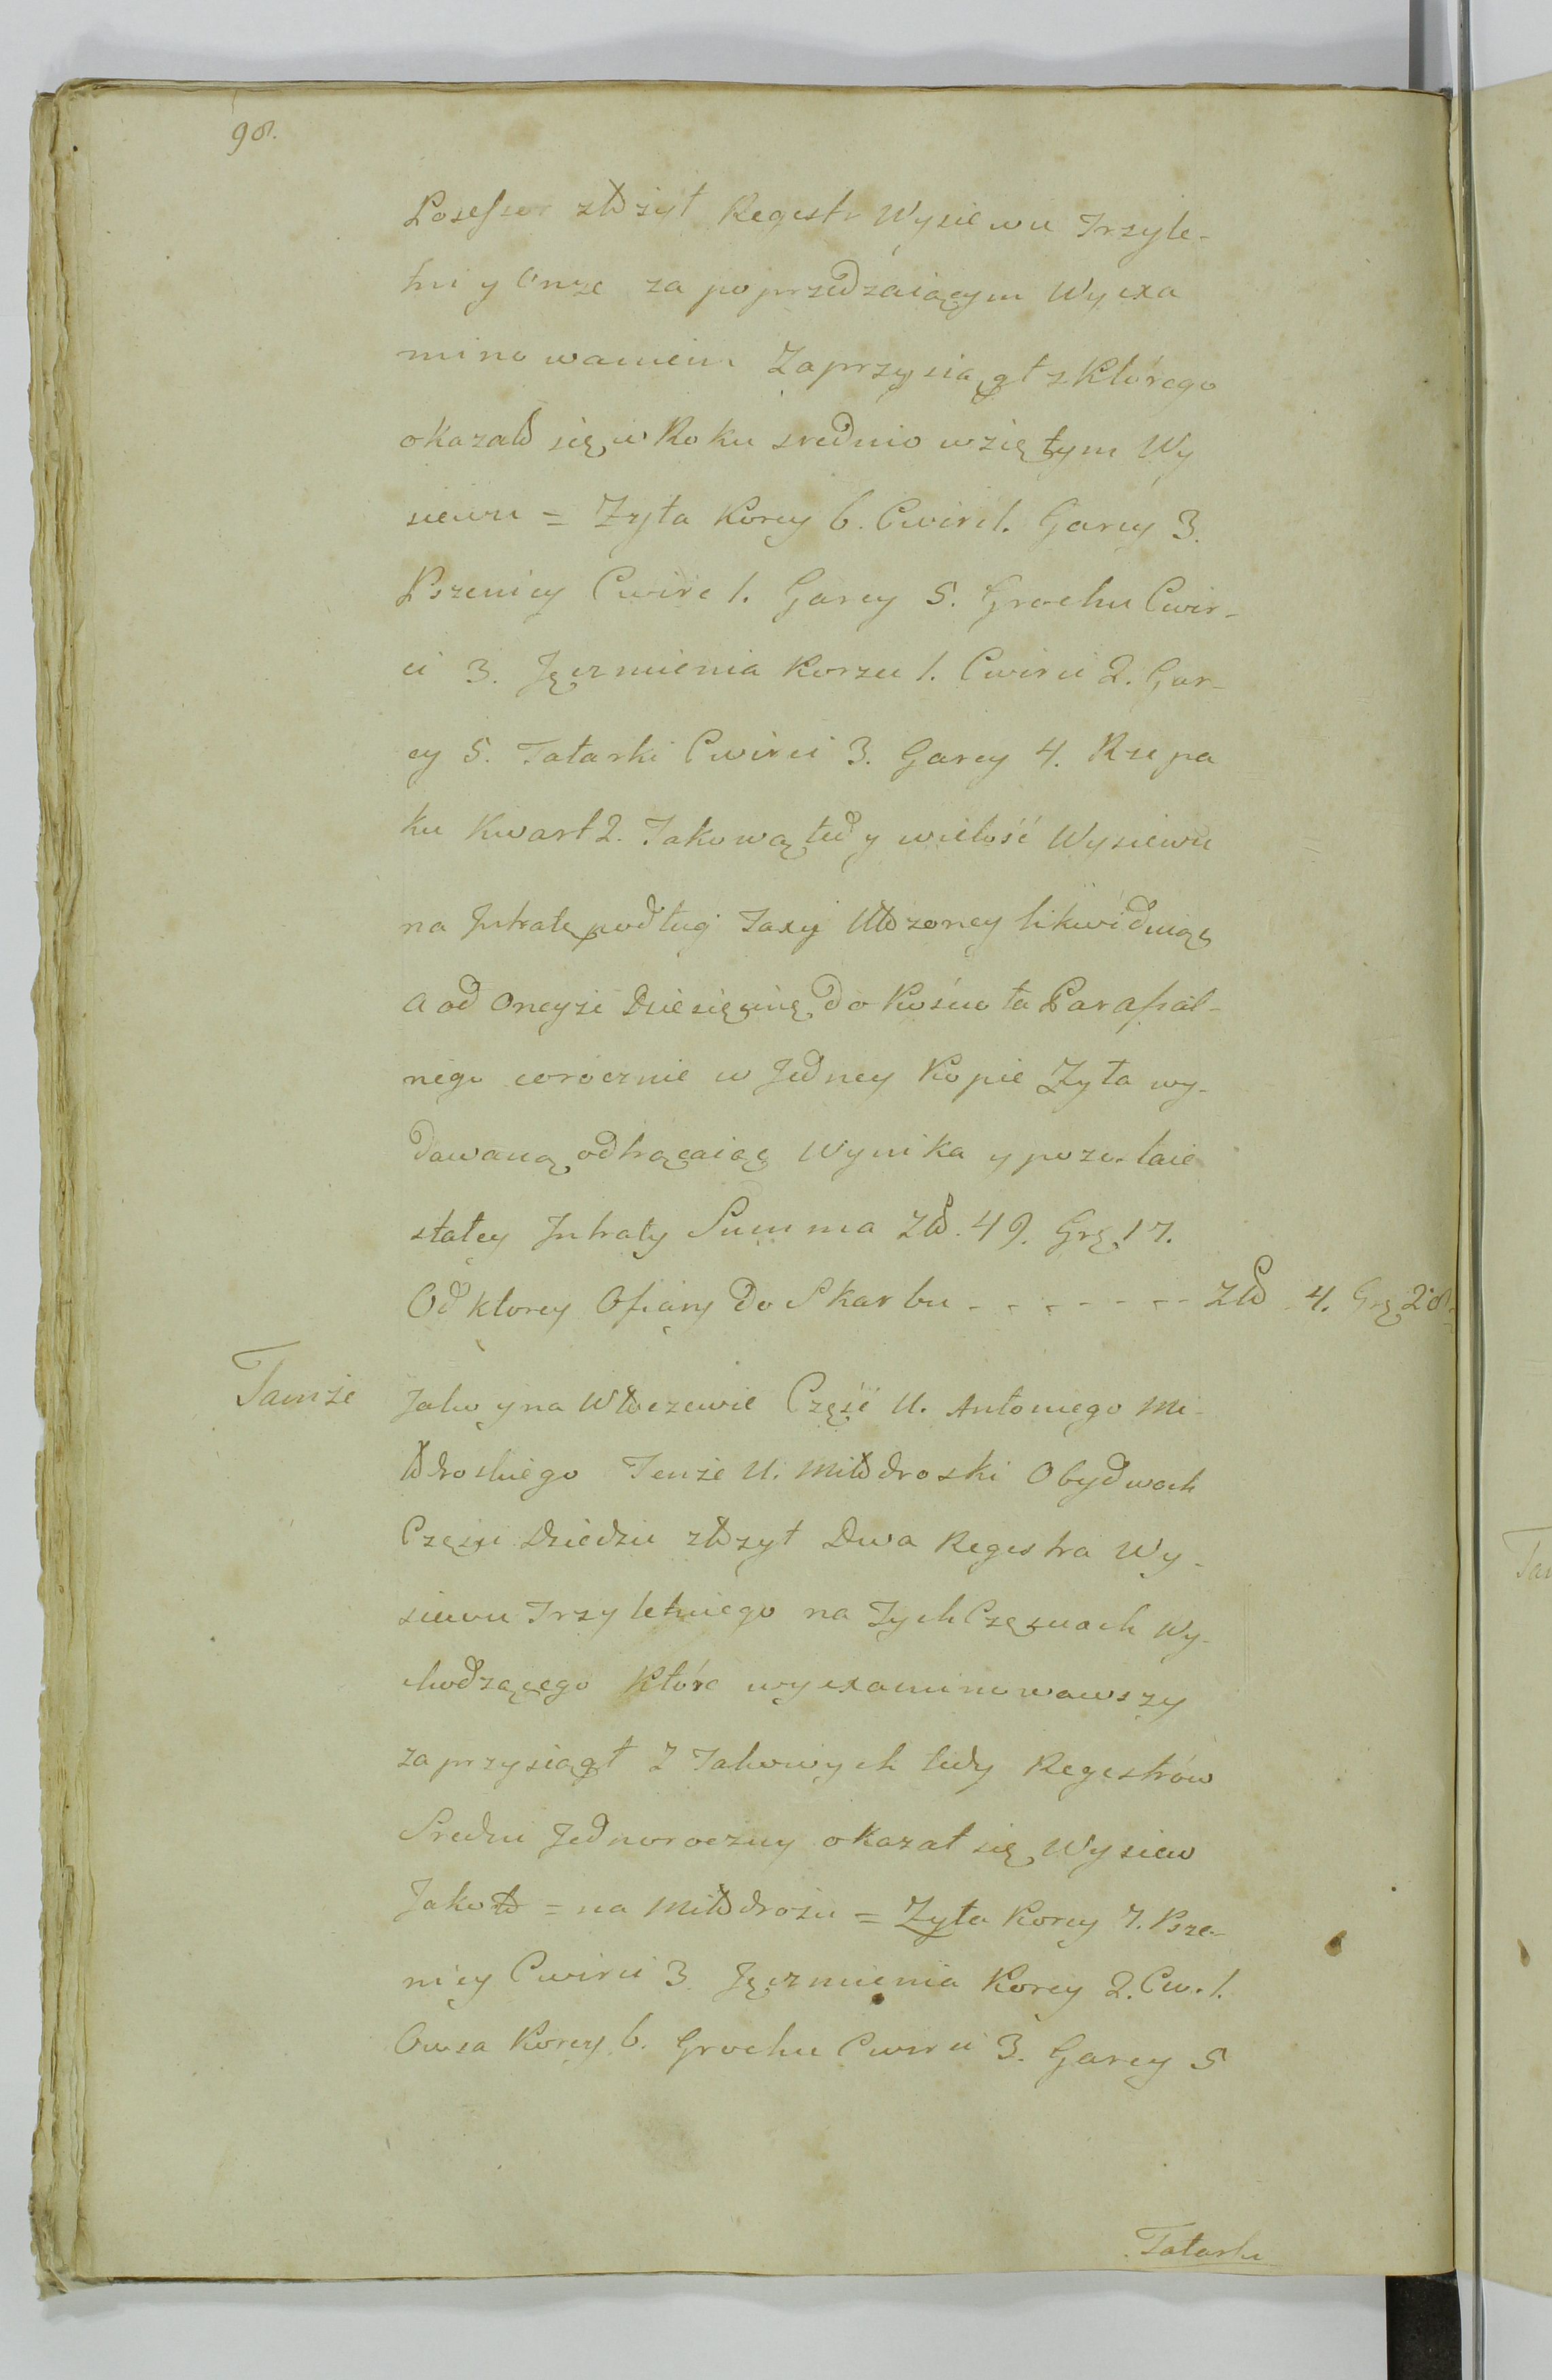 98.
Posessor złożył Regestr Wysiewu Trzyle-
tni y Onże za poprzedzaiącym Wyexa
minowaniem Zaprzysiągł z Którego
okazało się w Roku srednio wziętym Wy
siewu = Zyta Korcy 6. Cwierć 1. Garcy 3.
Pszenicy Cwierć 1. Garcy 5. Grochu Cwier-
ci 3. Jęczmienia Korzec 1. Cwierci 2. Gar-
cy 5. Tatarki Cwierci 3. Garcy 4. Rzepa
ku Kwart 2. Takową tedy wielość Wysiewu
na Jntratę podług Taxy Ułożoney likwiduiąc
a od Oneyże Dziesięcinę do Kościoła Parafial-
nego corocznie w Jedney Kopie Zyta wy-
dawaną odtrącaiąc Wynika y pozostaie
stałey Jntraty Summa Zło. 49. Grę. 17.
Od ktorey Ofiary do Skarbu - - - - - - - - Zło 4. Grę 28
Tamże
Jako y na Włoczewie Część U. Antoniego Mi-
łodroskiego Tenże U. Miłodroski Obydwoch
Częsci Dziedzic złożył Dwa Regestra Wy-
siewu Trzyletniego na Tych Częsciach Wy-
chodzącego Które wyexaminowawszy
zaprzysiągł Z Takowych tedy Regestrów
Sredni Jednoroczny okazał się Wysiew
Jako to = na Miłodrożu = Zyta Korcy 7. Psze-
nicy Cwierci 3 Jęczmienia Korcy 2. Cw. 1.
Owsa Korcy 6. Grochu Cwierci 3. Garcy 5
Tatarki